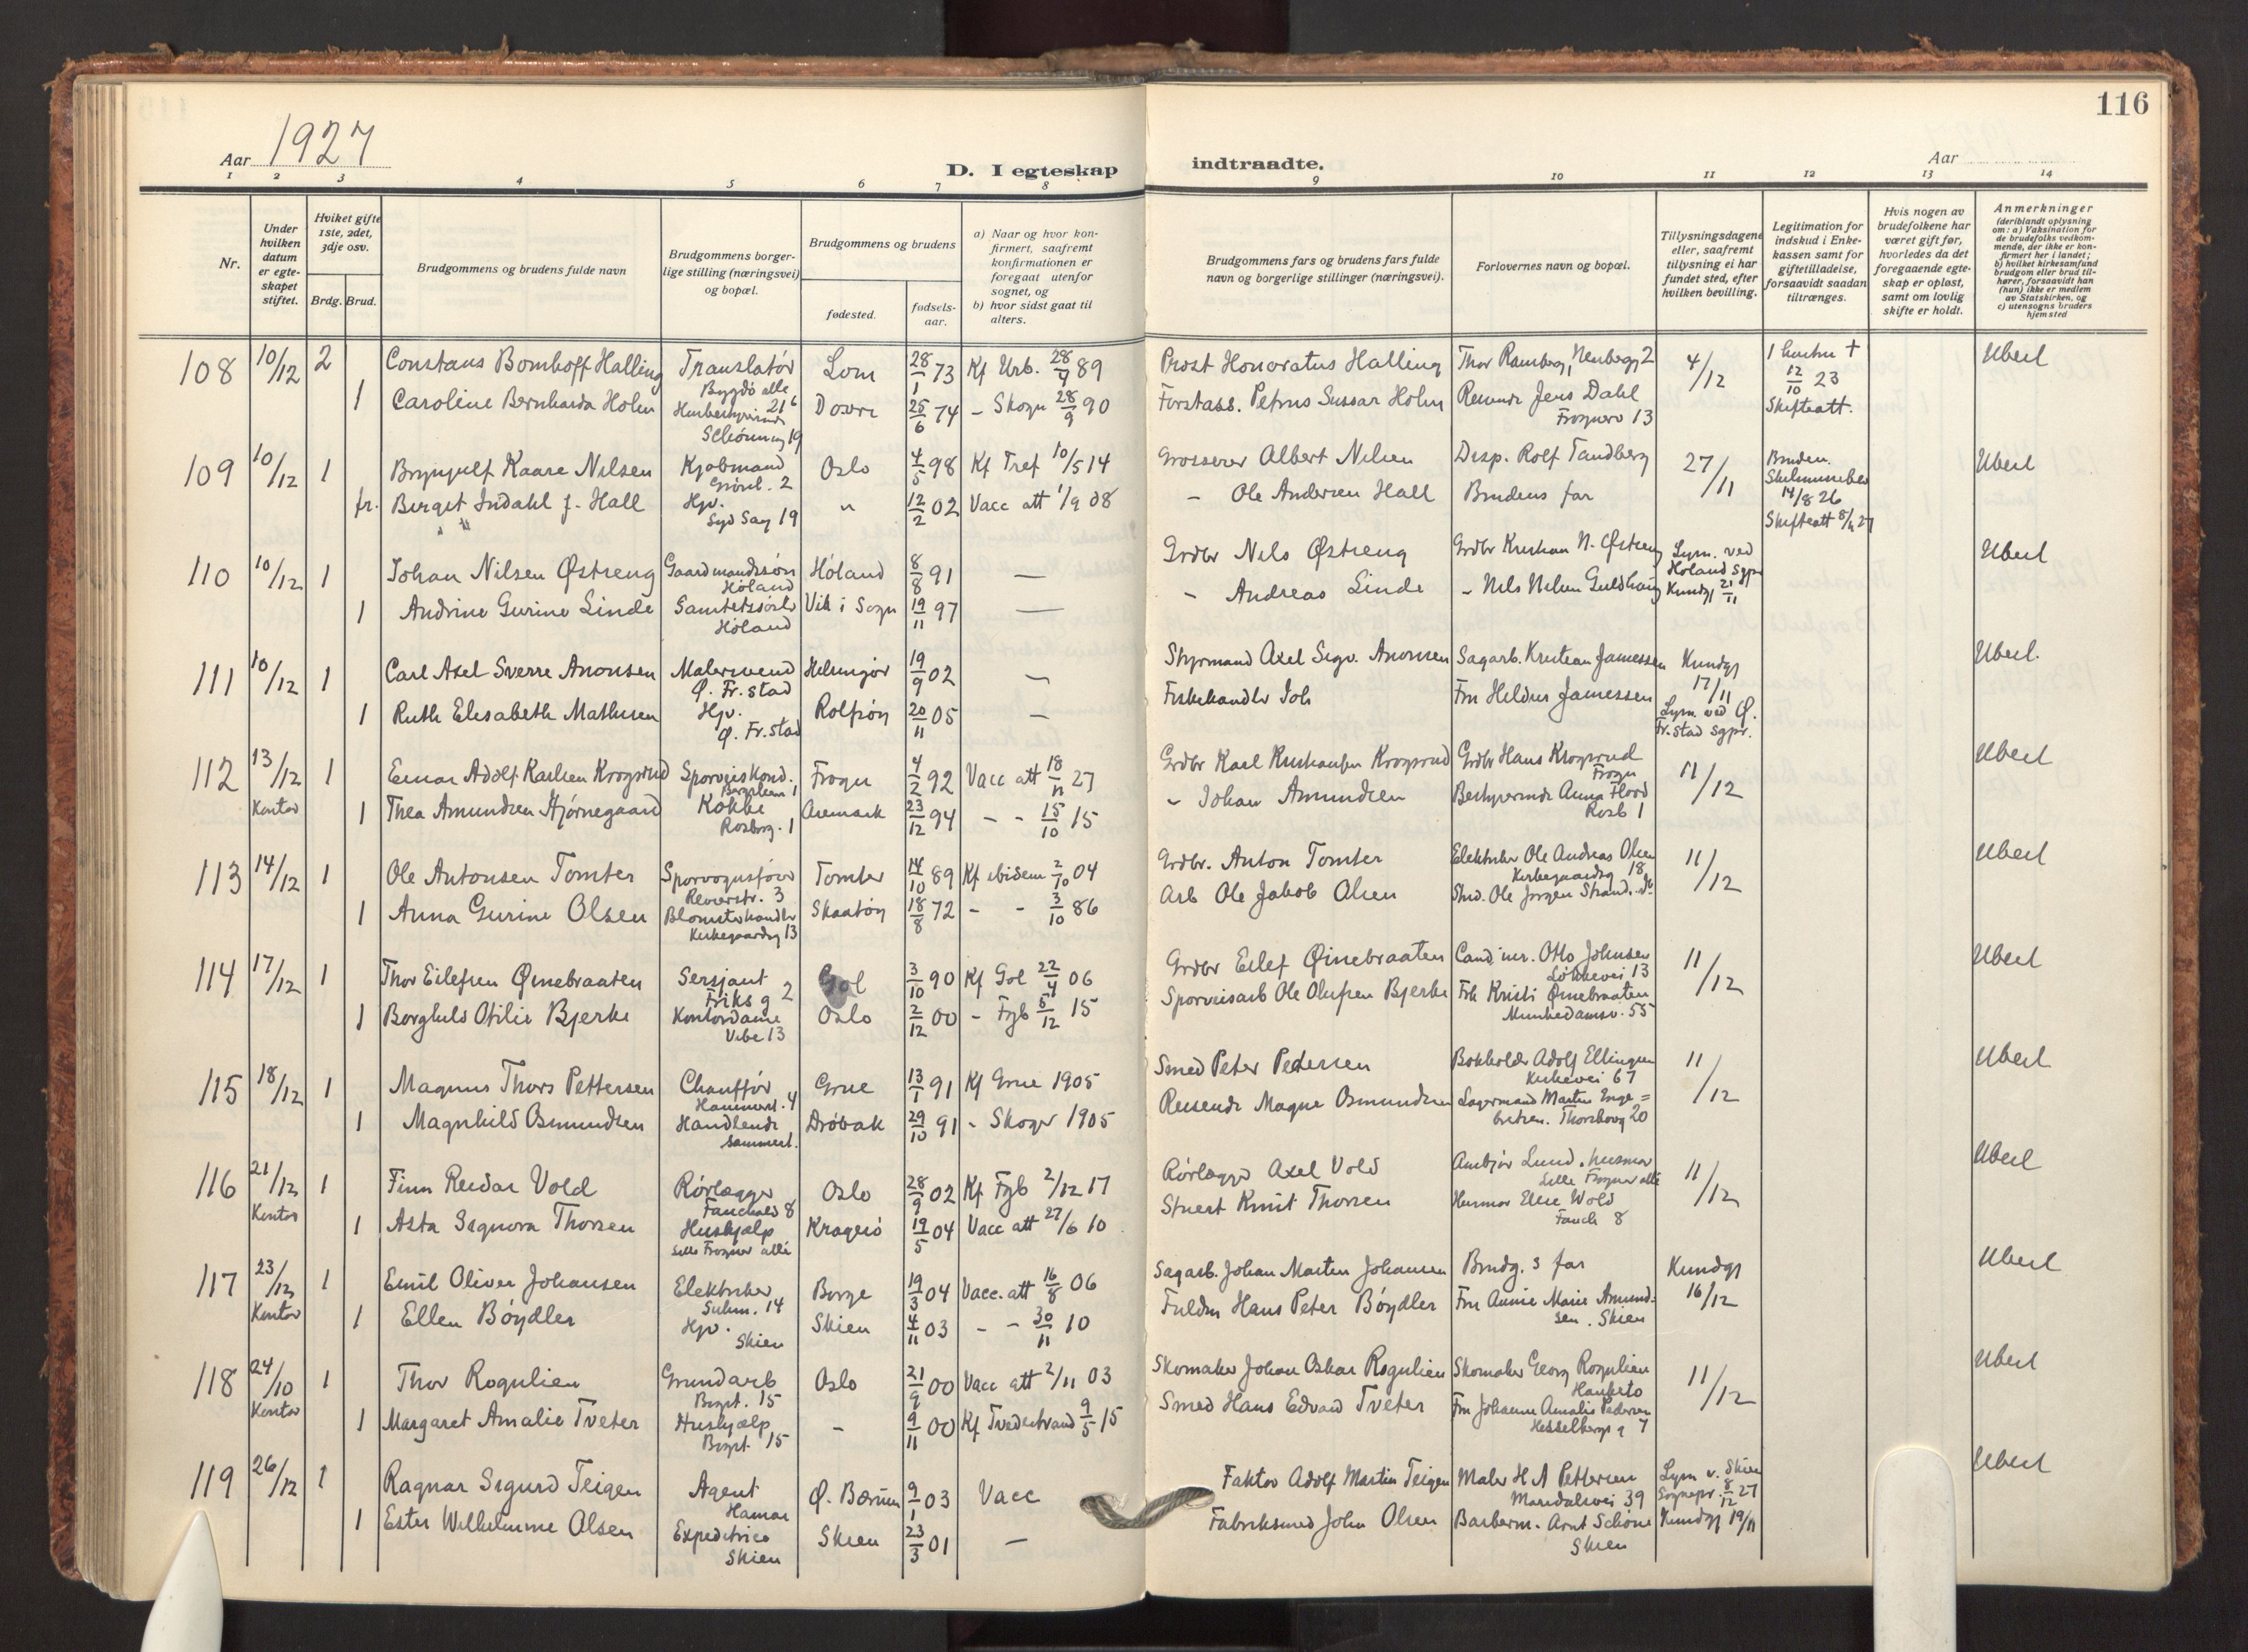 116
Aar 1927
D. I egteskap indtraadte.
Aar
1 2 3 4 5 6 7 8 9 10 11 12 13 14
Nr.
Under hvilken datum er egteskapet stiftet.
Hvilket gifte 1ste, 2det, 3dje osv.
Brdg. Brud.
Brudgommens og brudens fulde navn
Brudgommens borgerlige stilling (næringsvei) og bopæl.
Brudgommens og brudens
fødested.
fødselsaar.
a) Naar og hvor konfirmert, saafremt konfirmationen er foregaat utenfor sognet, og
b) hvor sidst gaat til alters.
Brudgommens fars og brudens fars fulde navn og borgerlige stillinger (næringsvei).
Forlovernes navn og bopæl.
Tillysningsdagene eller, saafremt tillysning ei har fundet sted, efter hvilken bevilling.
Legitimation for indskud i Enkekassen samt for giftetilladelse, forsaavidt saadan tiltrænges.
Hvis nogen av brudefolkene har været gift før, hvorledes da det foregaaende egteskap er opløst, samt om lovlig skifte er holdt.
Anmerkninger
(deriblandt oplysning om: a) Vaksination for de brudefolks vedkommende, der ikke er konfirmert her i landet; b) hvilket kirkesamfund brudgom eller brud tilhører, forsaavidt han (hun) ikke er medlem av Statskirken, og c) utensogns bruders hjemsted
108 10/12 2 Constans Bomhoff Halling Translatør Bygdø alle 21 Lom 28/1 73 Kf Urb. 28/4 89 Prost Honoratus Halling Thor Ramberg, Neuberg 2 4/12 1 hustru † 12/10 23 Skifteatt. Uberl
1 Caroline Bernharda Holm Husbestyrerinde Schøning 19 Dovre 25/6 74 - Skogn 28/9 90 Forstass. Petrus Sussar Holm Reisende Jens Dahl Frognerv 13
109 10/12 1 Brynjulf Kaare Nilsen Kjøbmand 2 Oslo 4/5 98 Kf Tref 10/5 14 Grosserer Albert Nilsen Disp. Rolf Tandberg 27/11 Bruden. 14/8 26 Skifteatt Uberl
fr. Birgit Indahl f. Hall Hjv. Syd Sag 19 " 12/2 02 Vacc att 1/9 08 - Ole Andersen Hall Brudens far
110 10/12 1 Johan Nilsen Østreng Gaardmandssøn Høland Høland 8/8 91 — Grdbr Nils Østreng Grdbr Kristian N. Østreng Lysn. ved Høland sgpr Kundgj 21/11 Uberl
1 Andrine Gurine Linde Høland Vik i Sogn 19/11 97 — - Andreas Linde - Nils Nilsen Guldhaug
111 10/12 1 Carl Axel Sverre Aronsen Malersvend Ø. Fr.stad Helsingør 19/9 02 — Styrmand Axel Sigv. Aronsen Sagarb. Kristian Jamessen Kundgj 17/11 Uberl.
1 Ruth Elisabeth Mathisen Hjv. Ø. Fr.stad Rolfsøy 20/11 05 — Fiskehandler Joh Fru Heldur Jamessen Lysn. ved Ø. Fr.stad sgpr.
112 13/12 Kontor 1 Einar Adolf Karlsen Krogsrud Sporveiskond. 1 Frogn 4/2 92 Vacc att 18/11 27 Grdbr Karl Kristiansen Krogsrud Grdbr Hans Krogsrud Frogn 11/12 Uberl
1 Thea Amundsen Hjørnegaard Kokke Rosborg. 1 Aremark 23/12 94 - - 15/10 15 - Johan Amundsen Bestyrerinde Anna Flood Rosb 1
113 14/12 1 Ole Antonsen Tomter Sporvognsfører Revierstr. 3 Tomter 14/10 89 Kf ibidem 2/10 04 Grdbr. Anton Tomter Elektriker Ole Andreas Olsen Kirkegaardsg 18 11/12 Uberl
1 Anna Gurine Olsen Blomsterhandler Kirkegaardsg 13 Skaatøy 18/8 72 - - 3/10 86 Arb Ole Jakob Olsen Ole Jørgen Strand.
114 17/12 1 Thor Eilefsen Øinebraaten Sersjant Eriks g 2 Gol 3/10 90 Kf Gol 22/4 06 Grdbr Eilef Øinebraaten Cand. mer. Otto Johnsen Løkkevei 13 11/12 Uberl
1 Borghild Otilie Bjerke Kontordame Vibe 13 Oslo 2/12 00 - Fgb 5/12 15 Sporveisarb Ole Olufsen Bjerke Frk Kristi Øinebraaten Munkedamsv. 55
115 18/12 1 Magnus Thors Pettersen Chauffør Hammerst. 4 Grue 13/1 91 Kf Grue 1905 Smed Peter Pedersen Bokholder Adolf Ellingsen Kirkevei 67 11/12 Uberl
1 Magnhild Osmundsen Handlende sammest. Drøbak 29/10 91 - Skoger 1905 Reisende Magne Osmundsen Lagermand Martin Engebretsen. Thorsbovg 20
116 21/12 Kontor 1 Finn Reidar Vold Rørlægger Fauchalds 8 Oslo 28/9 02 Kf Fgb 2/12 17 Rørlægger Axel Vold Lund. husmor Lille Frogner allé 11/12 Uberl
1 Asta Signora Thorsen Hushjælp Lille Frogner allé Kragerø 19/5 04 Vacc att 27/6 10 Stuert Knut Thorsen Husmor Else Wold Fauch 8
117 23/12 Kontor 1 Emil Oliver Johansen Elektriker Suhm. 14 Borge 19/3 04 Vacc. att 16/8 06 Sagarb. Johan Martin Johansen Brudg.s far Kundgj 16/12 Uberl
1 Ellen Bøydler Hjv. Skien Skien 4/11 03 - - 30/11 10 Fuldm Hans Peter Bøydler Fru Annie Marie Amundsen. Skien
118 24/10 Kontor 1 Thor Rognlien Grundarb Birgt. 15 Oslo 21/9 00 Vacc att 2/11 03 Skomaker Johan Oskar Rognlien Skomaker Georg Rognlien Hauketo 11/12 Uberl
1 Margaret Amalie Tveter Hushjælp Birgt. 15 - 9/11 00 Kf Tvedestrand 9/5 15 Smed Hans Edvard Tveter Fru Johanne Amalie Pedersen Hesselbergs g 7
119 26/12 1 Ragnar Sigurd Teigen Agent Hamar Ø. Bærum 9/1 03 Vacc Faktor Adolf Martin Teigen Maler H A Pettersen Maridalsvei 39 Lysn v. Skien Sognepr. 8/12 27 Uberl
1 Ester Wilhelmine Olsen Expeditrice Skien Skien 23/3 01 — Fabriksmed John Olsen Barberm. Arnt Schøne Skien Kundgj 19/11